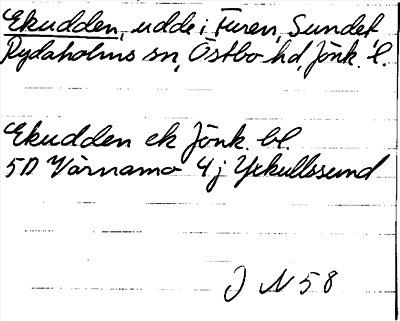 Ekudden, udde i Furen, Sundet
Rydaholms sn, Östbo hd, Jönk. l.
Ekudden ek Jönk. bl.
5D Värnamo 4j Yxkullssund
J N 58